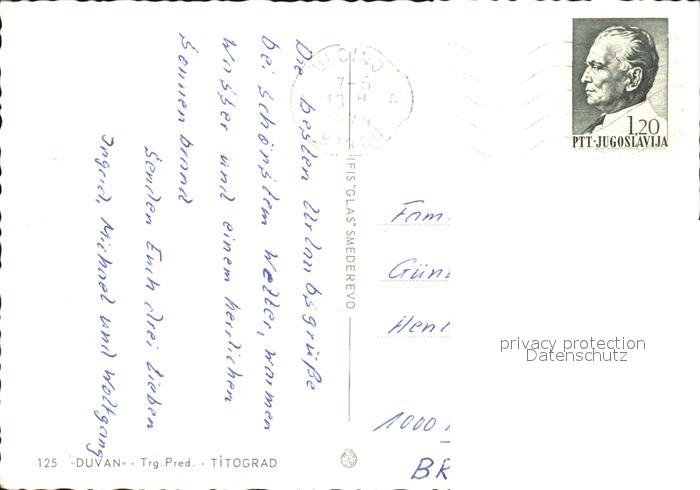 Die besten Urlaubsgrüße
bei schönstem Wetter, warmen
Wasser und einem herrlichen
Sonnenbrand
senden Euch drei Lieben
Ingrid, Michael und Wolfgang
125 «DUVAN» - Trg. Pred. - TITOGRAD
FIS "GLAS" SMEDEREVO
1,20
PTT-JUGOSLAVIJA
Fam.
Günt
Hen
1000
BR
privacy protection
Datenschutz